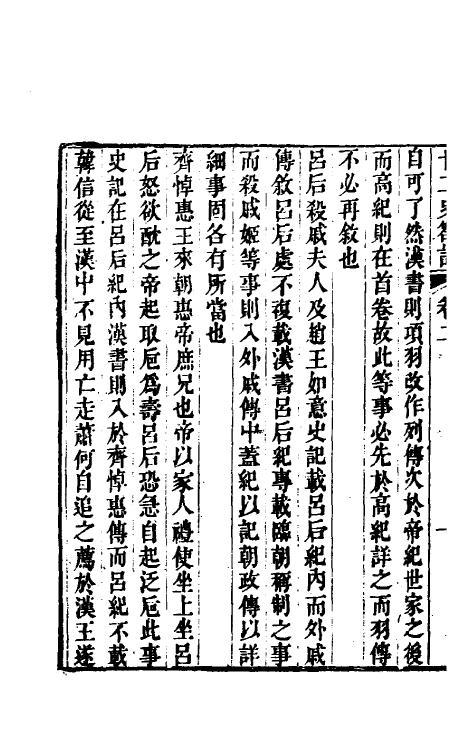 自可了然漢書則項羽改作列傳次於帝紀世家之後
而高紀則在首卷故此等事必先於高紀詳之而羽傳
不必再敘也
呂后殺戚夫人及趙王如意史記載呂后紀內而外戚
傳敘呂后處不復載漢書呂后紀專載臨朝稱制之事
而殺戚姬等事則入外戚傳中蓋紀以記朝政傳以詳
細事固各有所當也
齊悼惠王來朝惠帝庶兄也帝以家人禮使坐上坐呂
后怒欲酖之帝起取卮爲壽呂后恐急自起泛卮此事
史記在呂后紀內漢書則入於齊悼惠傳而呂紀不載
韓信從至漢中不見用亡走蕭何自追之薦於漢王遂